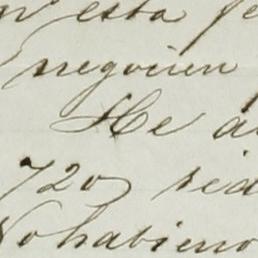 esta fe
negocien
He a
720 sed
No habieno